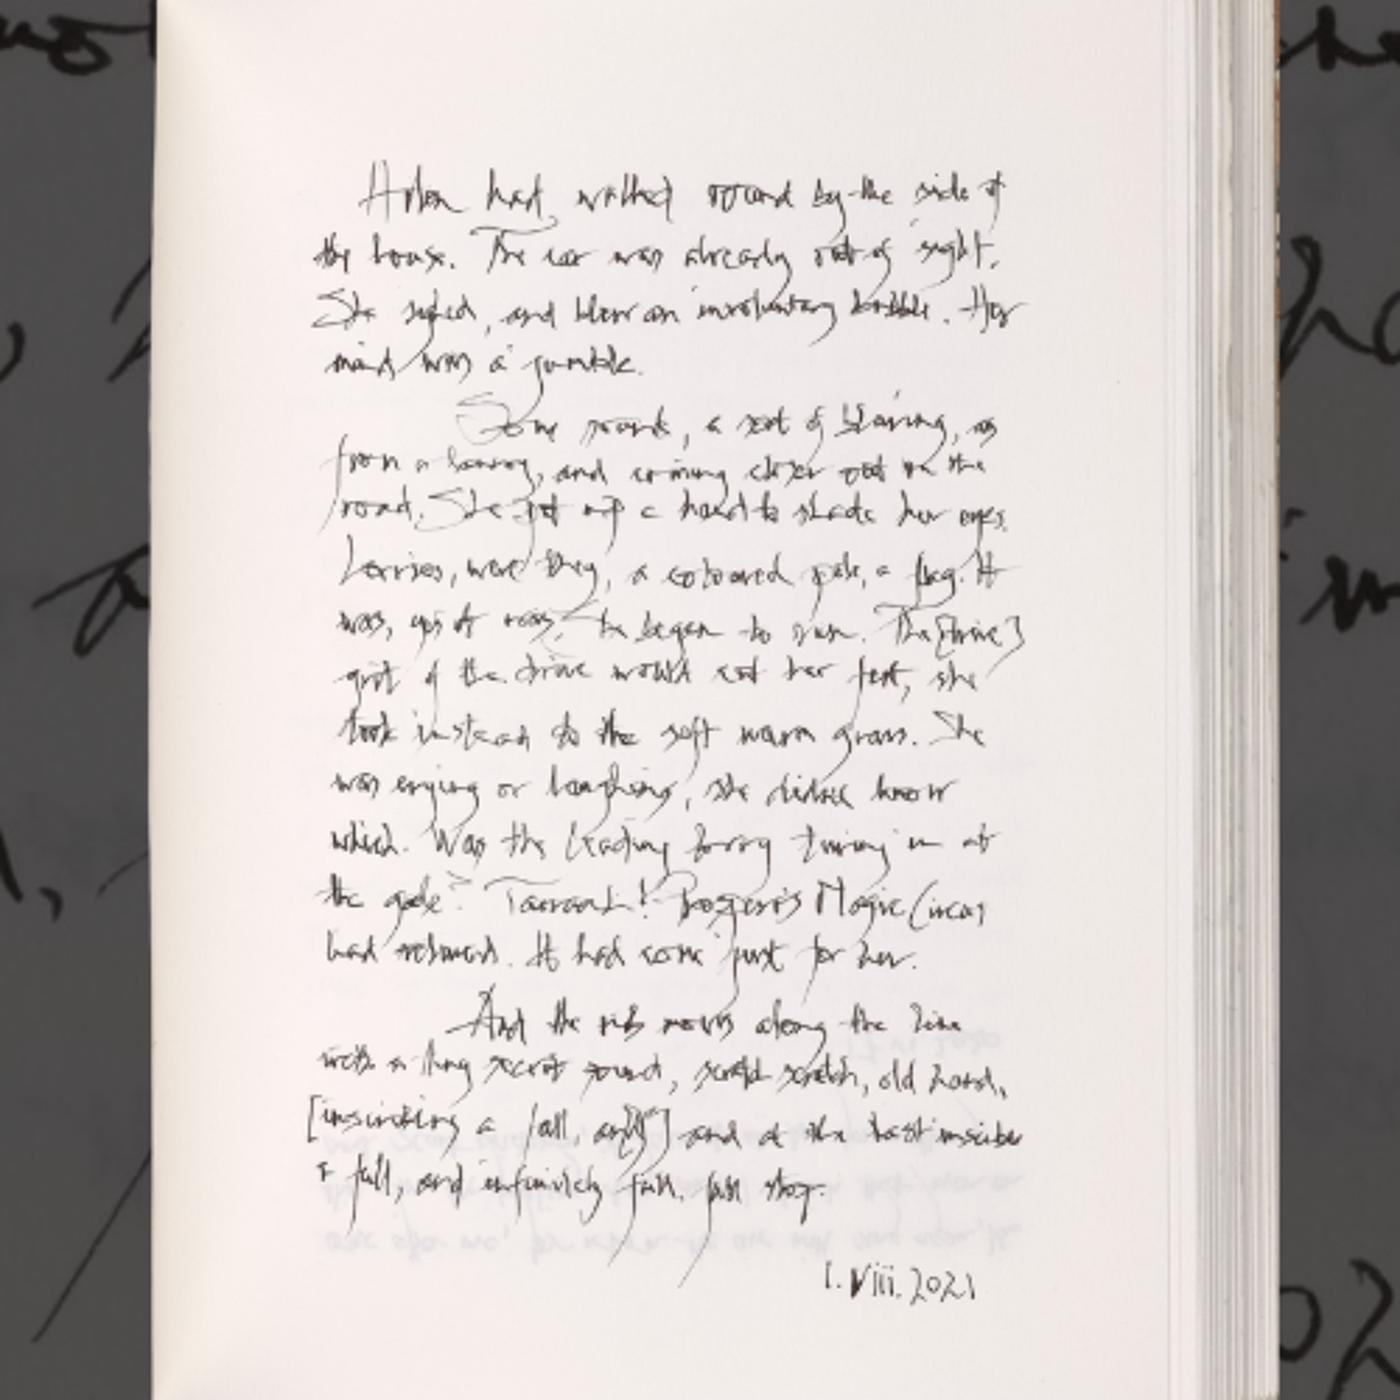 Helen had walked round by the side of
the house. The car was already out of sight.
She sighed, and blew an involuntary bubble. Her
mind was a jumble.
Some sounds, a sort of blaring, as
from a and coming closer out on the
road. She put up a hand to shade her eyes.
Lorries, were they, a coloured pole, a flag. It
was, yes it was. She began to run. The [drive]
grit of the drive would cut her feet, she
took instead to the soft warm grass. She
was crying or laughing, she didn't know
which. Was the leading lorry turning in at
the gate? Taraan! Prospero's Magic Circus
had returned. It had come just for her.
And the nib moves along the line
with a secret sound, scratch scratch, old hand,
[inscribing a full, and] and at the last inscribes
a full, and infinitely full, full stop.
1.viii.2021